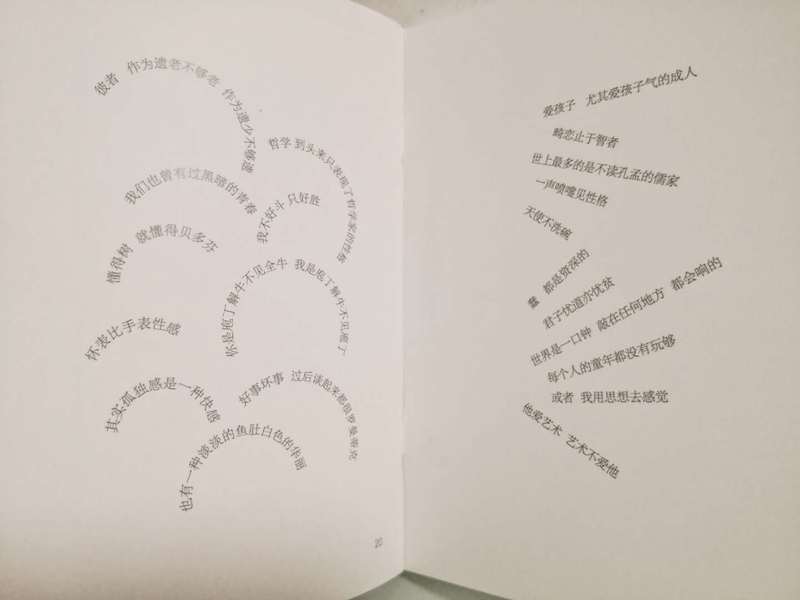 彼者 作为遗老不够老 作为遗少不够遗
哲学 到头来只表现了哲学家的性格
我们也曾有过黑暗的青春
我不好斗 只好胜
懂得树 就懂得贝多芬
你是庖丁解牛不见全牛 我是庖丁解牛不见庖丁
怀表比手表性感
好事坏事 过后谈起来都很罗曼蒂克
其实孤独感是一种快感
也有一种淡淡的鱼肚白色的华丽
20
爱孩子 尤其爱孩子气的成人
畸恋止于智者
世上最多的是不读孔孟的儒家
一声喷嚏见性格
天使不洗碗
都是资深的
君子忧道亦忧贫
世界是一口钟 敲在任何地方 都会响的
每个人的童年都没有玩够
或者 我用思想去感觉
他爱艺术 艺术不爱他